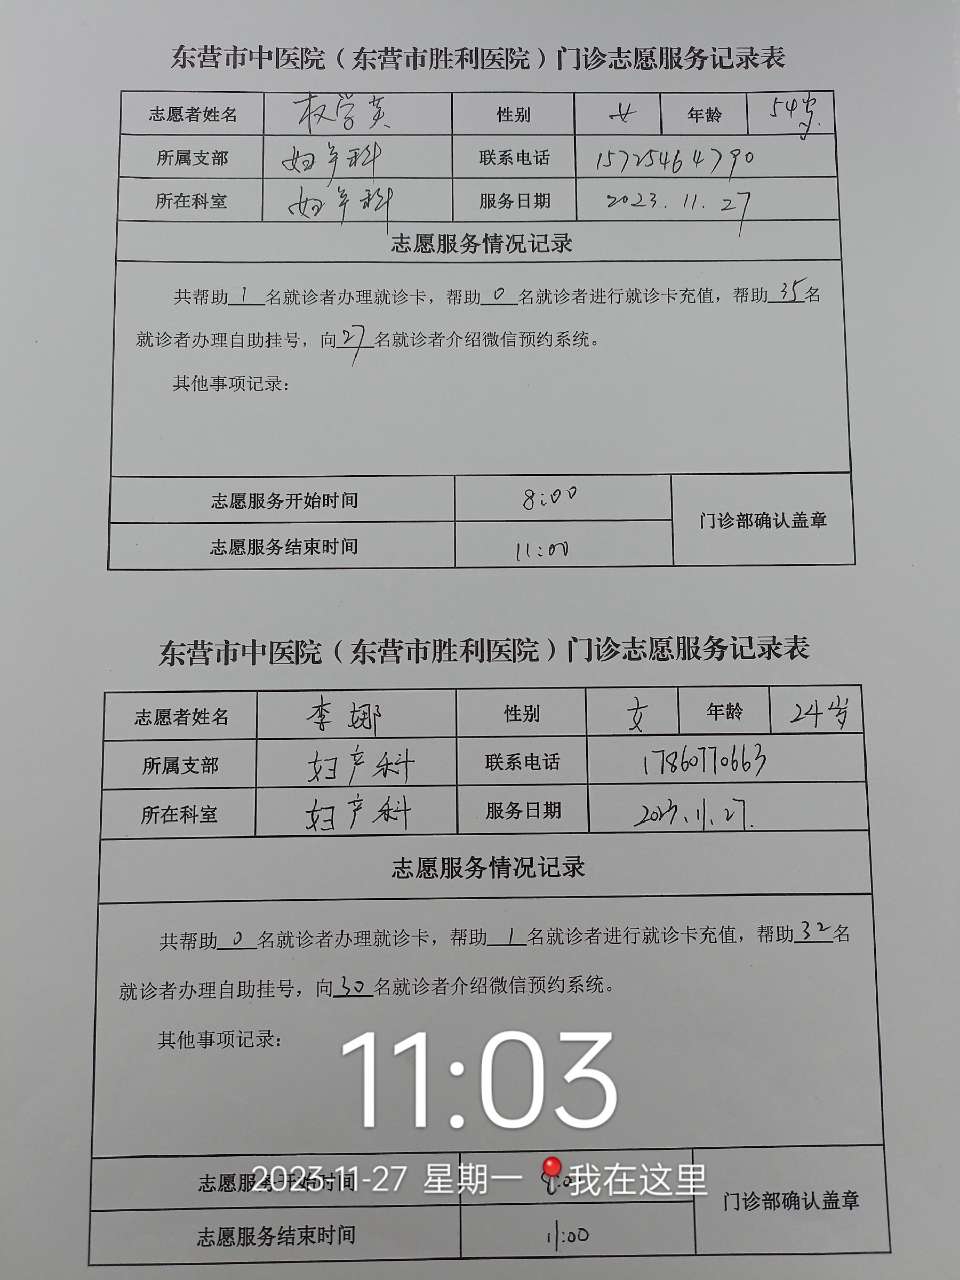 东营市中医院（东营市胜利医院）门诊志愿服务记录表
志愿者姓名 权学英 性别 女 年龄 54岁
所属支部 妇产科 联系电话 15725464790
所在科室 妇产科 服务日期 2023.11.27
志愿服务情况记录
共帮助1名就诊者办理就诊卡，帮助0名就诊者进行就诊卡充值，帮助35名
就诊者办理自助挂号，向27名就诊者介绍微信预约系统。
其他事项记录：
志愿服务开始时间 8:00
门诊部确认盖章
志愿服务结束时间 11:00
东营市中医院（东营市胜利医院）门诊志愿服务记录表
志愿者姓名 李娜 性别 女 年龄 24岁
所属支部 妇产科 联系电话 17860770663
所在科室 妇产科 服务日期 2023.11.27.
志愿服务情况记录
共帮助0名就诊者办理就诊卡，帮助1名就诊者进行就诊卡充值，帮助32名
就诊者办理自助挂号，向30名就诊者介绍微信预约系统。
其他事项记录：
11:03
志愿服务开始时间 8:00
2023-11-27 星期一 我在这里
门诊部确认盖章
志愿服务结束时间 11:00